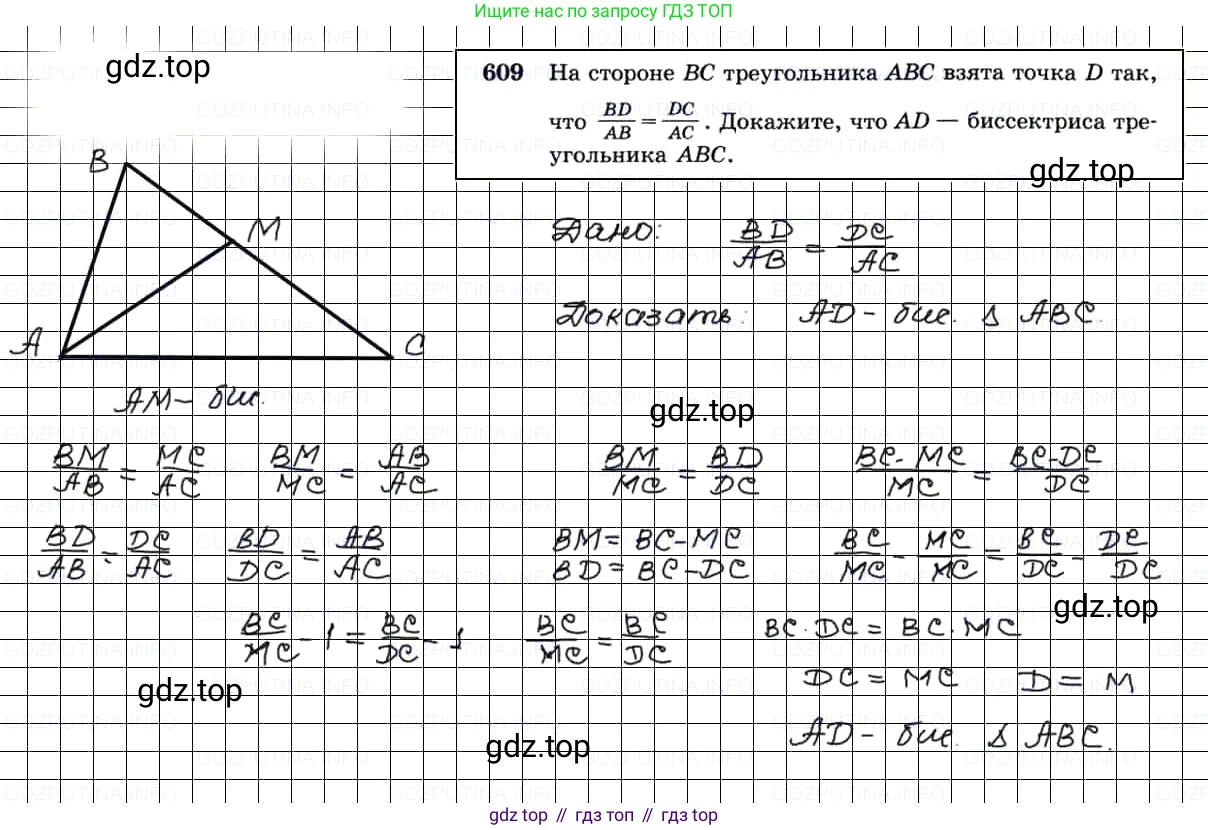 Ищите нас по запросу ГДЗ ТОП
gdz.top
609 На стороне BC треугольника ABC взята точка D так,
что BD/AB = DC/AC. Докажите, что AD — биссектриса тре-
угольника ABC.
gdz.top
B
M
A
C
Дано: BD/AB = DC/AC
Доказать: AD - бис. Δ ABC.
AM - бис.
gdz.top
BM/AB = MC/AC BM/MC = AB/AC BM/MC = BD/DC BC-MC/MC = BC-DC/DC
BD/AB = DC/AC BD/DC = AB/AC BM = BC-MC BC/MC - MC/MC = BC/DC - DC/DC
BD = BC-DC
gdz.top
BC/MC - 1 = BC/DC - 1 BC/MC = BC/DC BC·DC = BC·MC
DC = MC D = M
gdz.top
AD - бис. Δ ABC.
gdz.top
gdz top // гдз топ // гдз top
GDZPUTINA.INFO